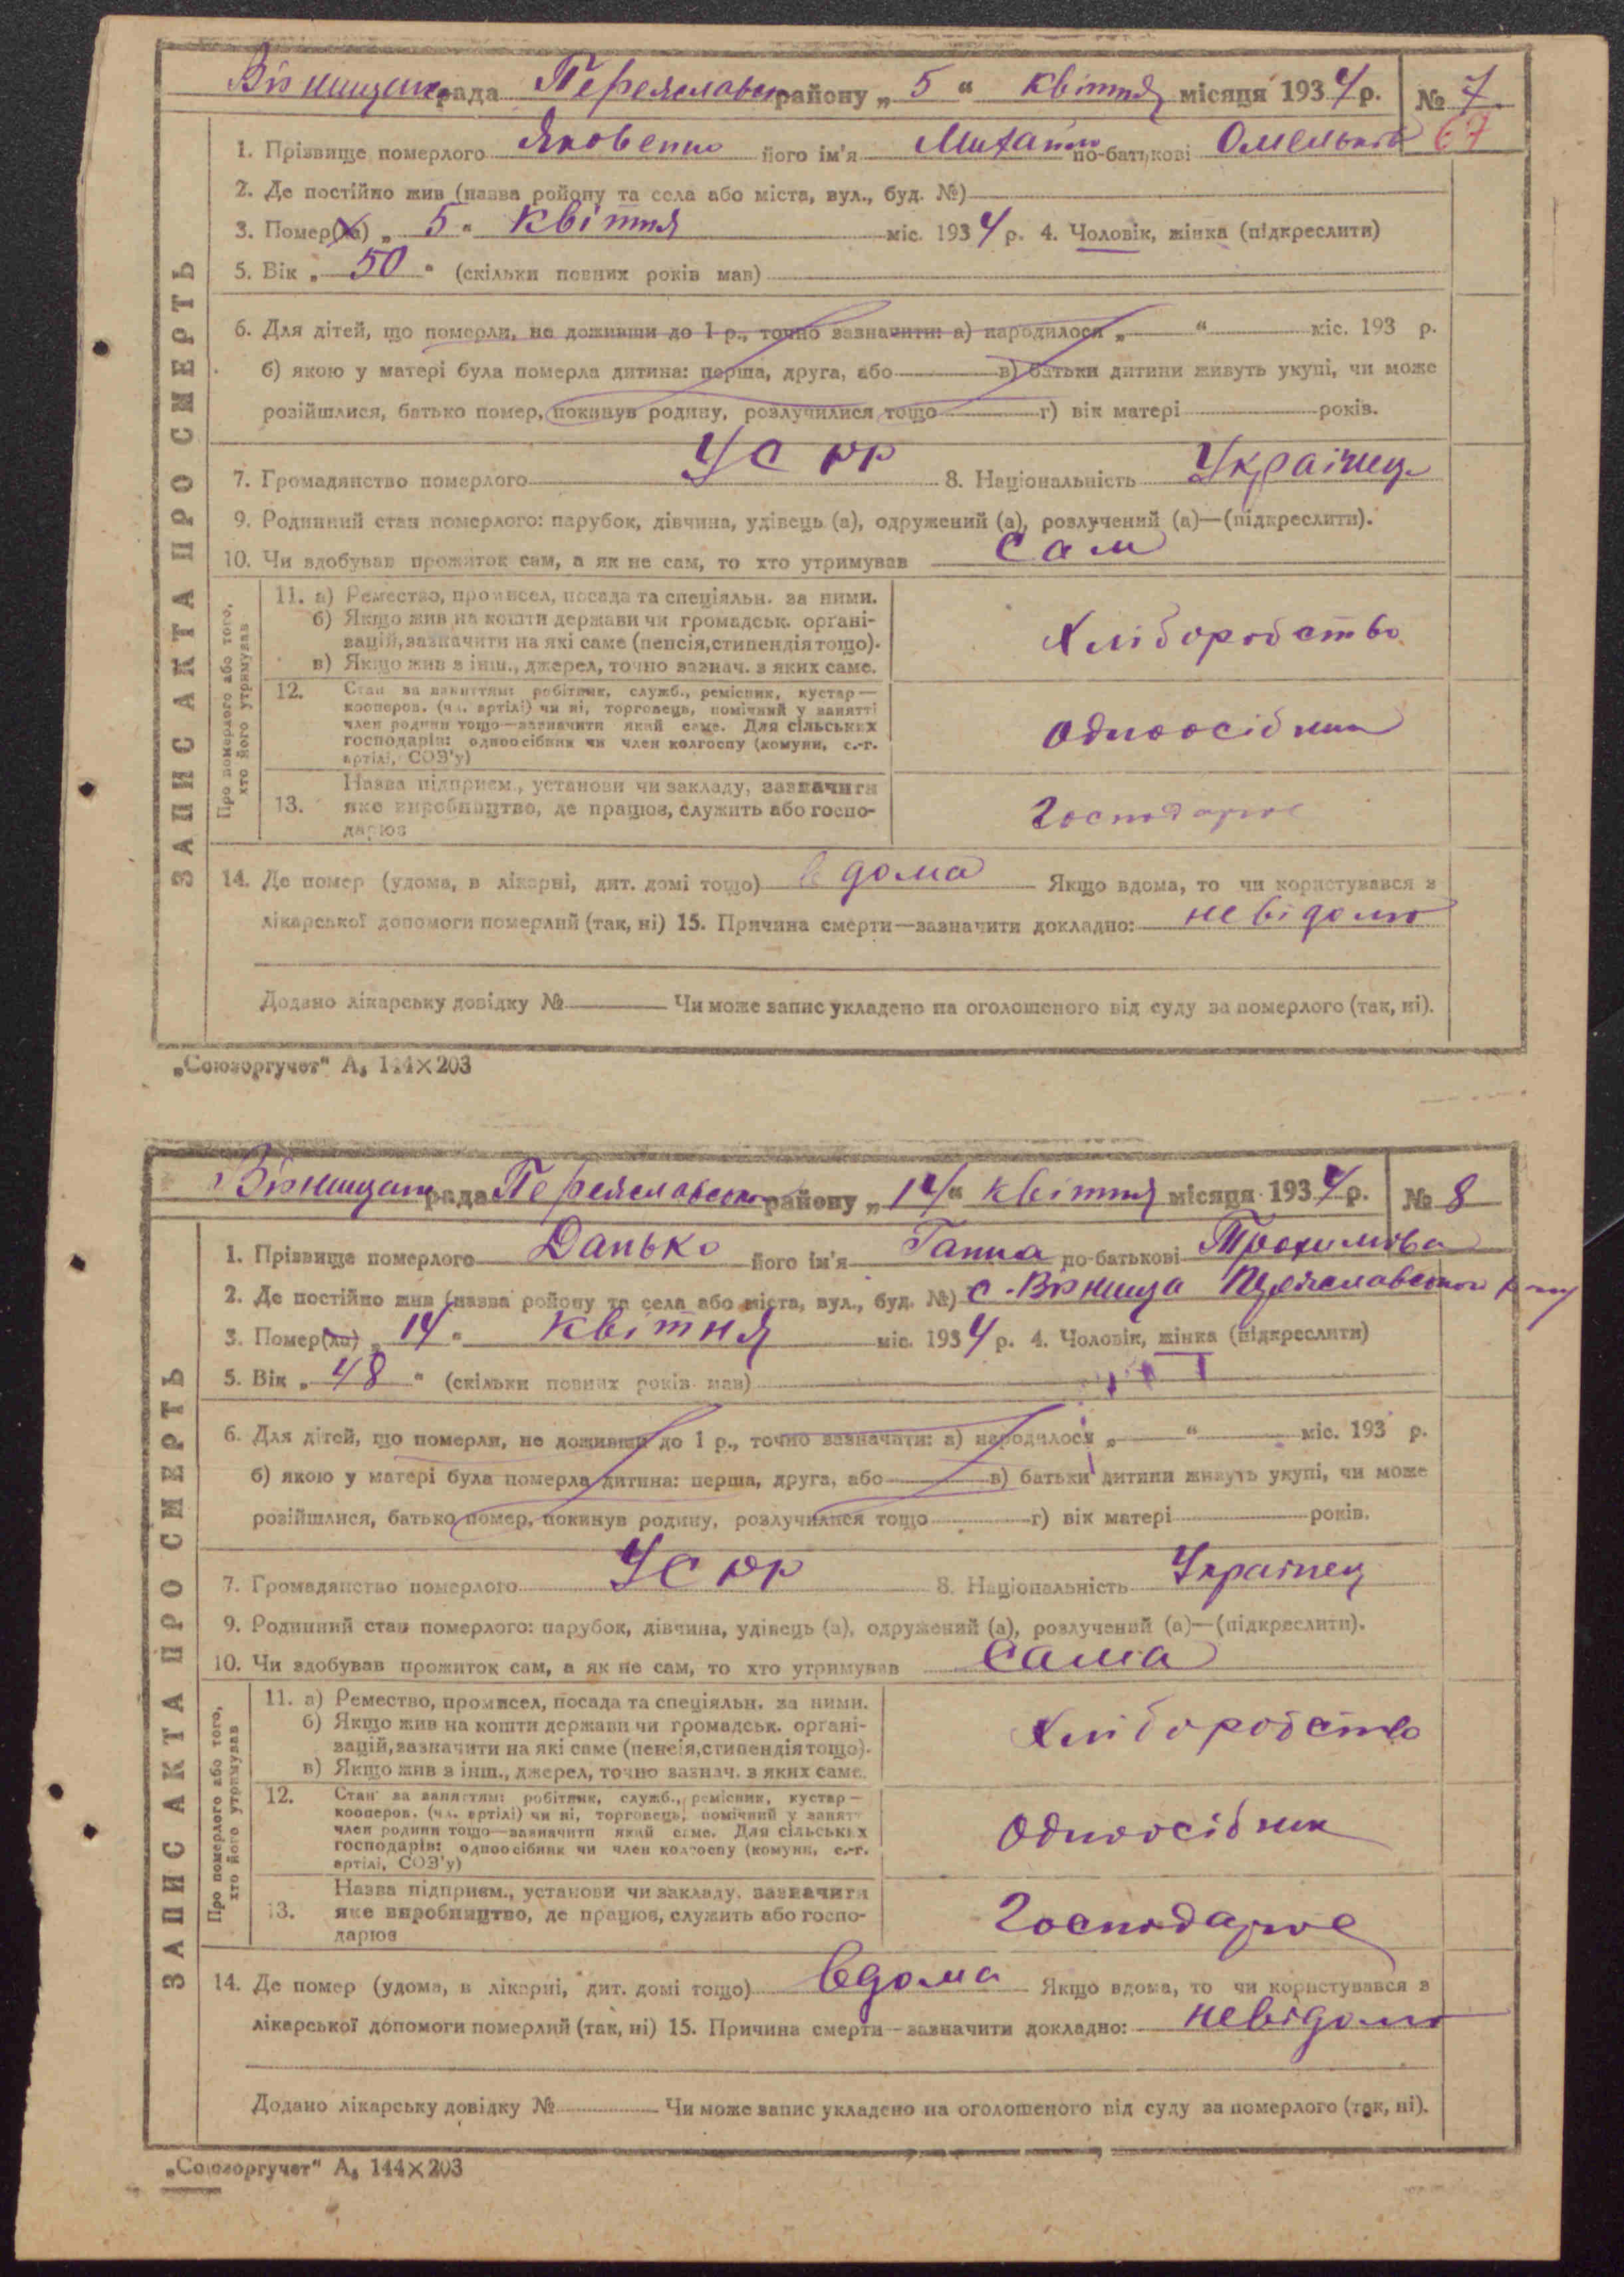 Вінницька рада Переяславськ району „ 5 “ квітня місяця 1934 р. № 7.
1. Прізвище померлого Яковенко його ім'я Михайло по-батькові Омельков 67
2. Де постійно жив (назва ройону та села або міста, вул., буд. №)
3. Помер(ла) „ 5 “ квітня міс. 1934 р. 4. Чоловік, жінка (підкреслити)
5. Вік „ 50 “ (скільки повних років мав)
6. Для дітей, що померли, не доживши до 1 р., точно зазначити: а) народилося „ “ міс. 193 р.
б) якою у матері була померла дитина: перша, друга, або в) батьки дитини живуть укупі, чи може
розійшлися, батько помер, покинув родину, розлучилися тощо г) вік матері років.
7. Громадянство померлого УСРР 8. Національність Українец
9. Родинний стан померлого: парубок, дівчина, удівець (а), одружений (а), розлучений (а)—(підкреслити).
10. Чи здобував прожиток сам, а як не сам, то хто утримував сам
ЗАПИС АКТА ПРО СМЕРТЬ
Про померлого або того,
хто його утримував
11. а) Ремество, промисел, посада та спеціяльн. за ними.
б) Якщо жив на кошти держави чи громадськ. органі-
зацій, зазначити на які саме (пенсія, стипендія тощо).
в) Якщо жив з інш., джерел, точно зазнач. з яких саме.
Хліборобство
12. Стан за заняттям: робітник, служб., ремісник, кустар—
коопeров. (чл. артілі) чи ні, торговець, помічний у занятті
член родини тощо—зазначити який саме. Для сільських
господарів: одноосібник чи член колгоспу (комуни, с.-г.
артілі, СОЗ'у)
одноосібник
13. Назва підприєм., установи чи закладу, зазначити
яке виробництво, де працює, служить або госпо-
дарює
Господарює
14. Де помер (удома, в лікарні, дит. домі тощо) вдома Якщо вдома, то чи користувався з
лікарської допомоги померлий (так, ні) 15. Причина смерти—зазначити докладно: невідомо
Додано лікарську довідку № Чи може запис укладено на оголошеного від суду за померлого (так, ні).
„Союзоргучет“ А₅ 144×203
рада Переяславськ району „ 14 “ квітня місяця 1934 р. № 8
1. Прізвище померлого Данько його ім'я Ганна по-батькові Трохимовна
2. Де постійно жив (назва ройону та села або міста, вул., буд. №) с.
3. Помер(ла) „ 14 “ квітня міс. 1934 р. 4. Чоловік, жінка (підкреслити)
5. Вік „ 48 “ (скільки повних років мав)
6. Для дітей, що померли, не доживши до 1 р., точно зазначити: а) народилося „ “ міс. 193 р.
б) якою у матері була померла дитина: перша, друга, або в) батьки дитини живуть укупі, чи може
розійшлися, батько помер, покинув родину, розлучилися тощо г) вік матері років.
7. Громадянство померлого УСРР 8. Національність Українец
9. Родинний стан померлого: парубок, дівчина, удівець (а), одружений (а), розлучений (а)—(підкреслити).
10. Чи здобував прожиток сам, а як не сам, то хто утримував сама
ЗАПИС АКТА ПРО СМЕРТЬ
Про померлого або того,
хто його утримував
11. а) Ремество, промисел, посада та спеціяльн. за ними.
б) Якщо жив на кошти держави чи громадськ. органі-
зацій, зазначити на які саме (пенсія, стипендія тощо).
в) Якщо жив з інш., джерел, точно зазнач. з яких саме.
Хліборобство
12. Стан за заняттям: робітник, служб., ремісник, кустар—
кооперов. (чл. артілі) чи ні, торговець, помічний у занят
член родини тощо—зазначити який саме. Для сільських
господарів: одноосібник чи член колгоспу (комуни, с.-г.
артілі, СОЗ'у)
Одноосібник
13. Назва підприєм., установи чи закладу, зазначити
яке виробництво, де працює, служить або госпо-
дарює
Господарює
14. Де помер (удома, в лікарні, дит. домі тощо) вдома Якщо вдома, то чи користувався з
лікарської допомоги померлий (так, ні) 15. Причина смерти—зазначити докладно: невідомо
Додано лікарську довідку № Чи може запис укладено на оголошеного від суду за померлого (так, ні).
„Союзоргучет“ А₅ 144×203